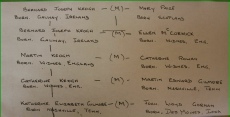 Bernard Joseph Keogh — (M) — Mary Page
Born. Galway Ireland Born Scotland
Bernard Joseph Keogh — (M) — Ellen McCormick
Born. Galway, Ireland. Born. Widnes, Eng.
Martin Keogh — (M) — Catherine
Born. Widnes, England Born. Widnes, Eng.
Catherine Keogh — (M) — Martin Edward Gilmore
Born. Widnes Eng. Born. Nashville, Tenn.
Katherine Elizabeth Gilmore — (M) — John
Born. Nashville, Tenn. Born. Des Moines Iowa